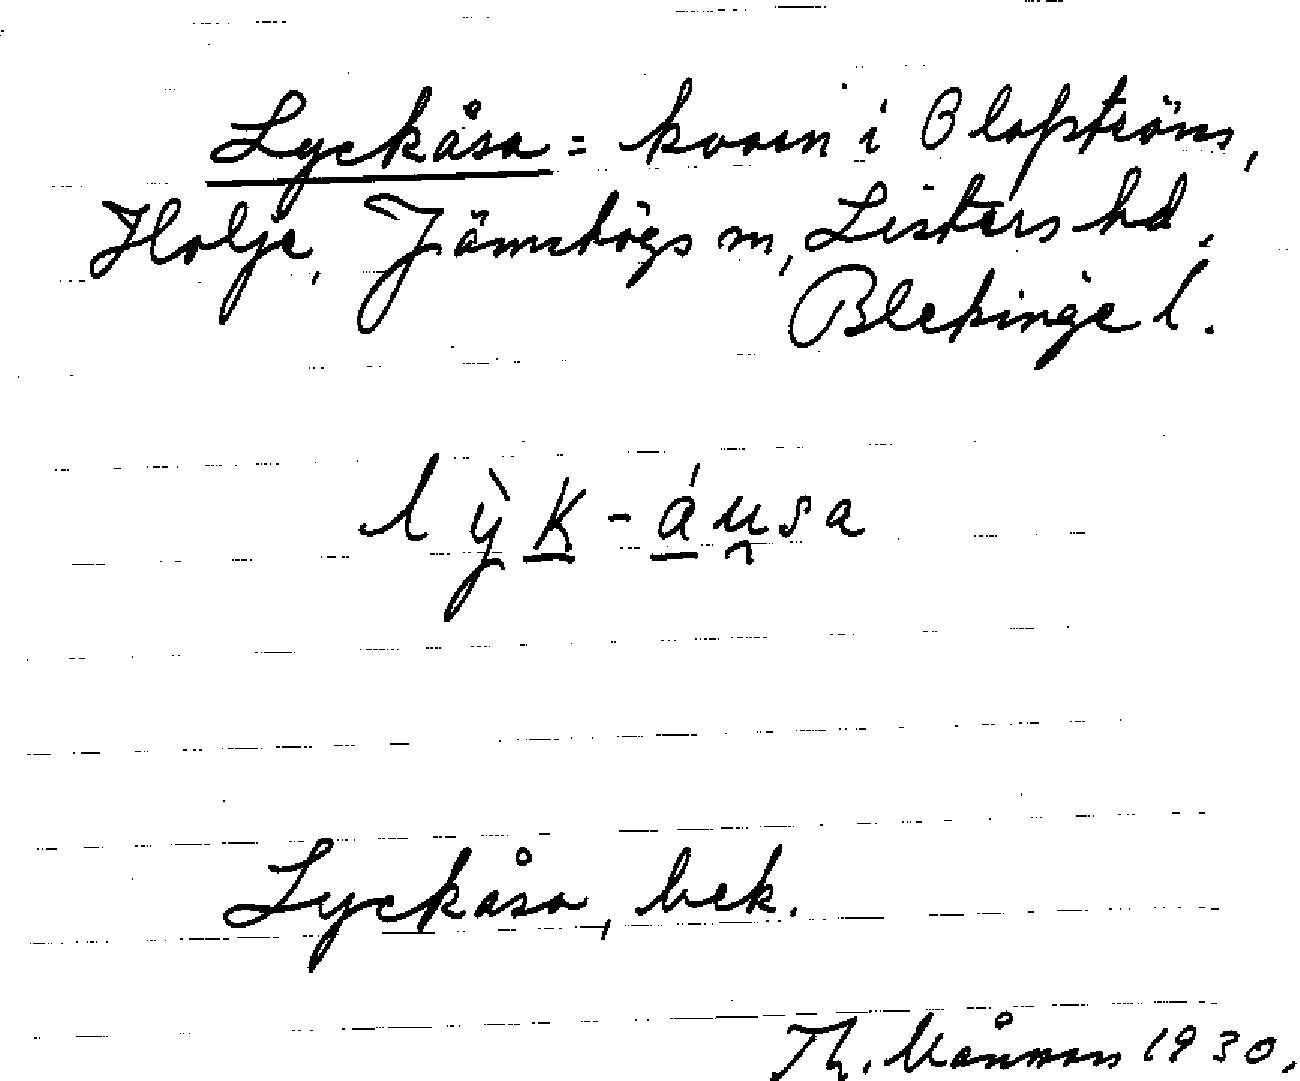 Lyckåsa = kvarn i Olofströms,
Holje, Jämshögs sn, Listers hd,
Blekinge l.
lỳk-áusa
Lyckåsa, bek.
Th. 1930.